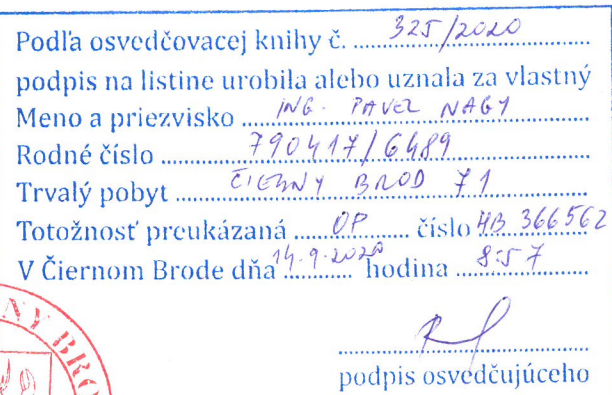 Podľa osvedčovacej knihy č. 325/2020
podpis na listine urobila alebo uznala za vlastný
Meno a priezvisko ING. PAVEL NAGY
Rodné číslo 790417/6489
Trvalý pobyt ČIERNY BROD 71
Totožnosť preukázaná OP číslo HB 366562
V Čiernom Brode dňa 14.9.2020 hodina 8:57
NY BRO
podpis osvedčujúceho